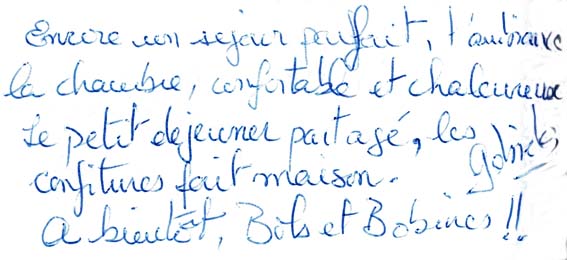 Encore un séjour parfait, l'ambiance
la chambre, confortable et chaleureux
Le petit dejeuner partagé, les
confitures fait maison.
A bientôt, Bols et Bobines !!